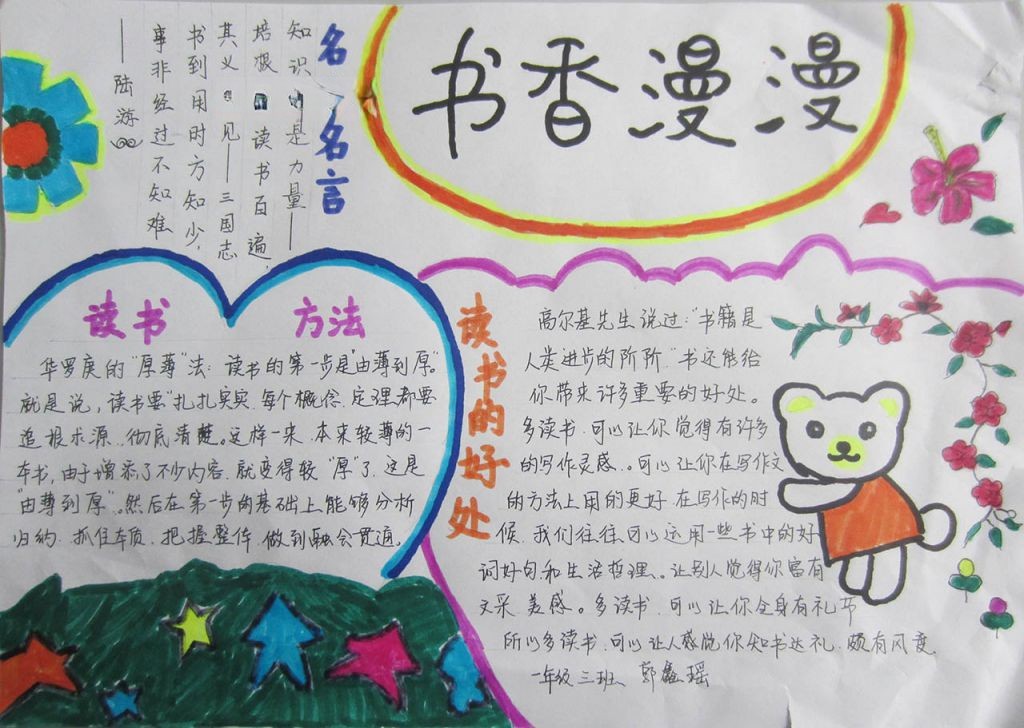 书香漫漫
名人名言
知识就是力量——
培根 读书百遍,
其义自见——三国志
书到用时方知少,
事非经过不知难
——陆游
读书 方法
华罗庚的“厚薄”法：读书的第一步是“由薄到厚”。
就是说，读书要“扎扎实实 每个概念 定理都要
追根求源 彻底清楚。这样一来 本来较薄的一
本书，由于增添了不少内容 就变得较“厚”了 这是
“由薄到厚”。然后在第一步的基础上能够分析
归纳 抓住本质 把握整体 做到融会贯通。
读书的好处
高尔基先生说过：“书籍是
人类进步的阶阶”书还能给
你带来许多重要的好处。
多读书 可以让你觉得有许多
的写作灵感。。可以让你在写作文
的方法上用的更好 在写作的时
候 我们往往可以运用一些书中的好
词好句和生活哲理。让别人觉得你富有
文采 美感。多读书 可以让你全身有礼节
所以多读书 可以让人感觉你知书达礼 颇有风度
一年级三班 郭鑫瑶